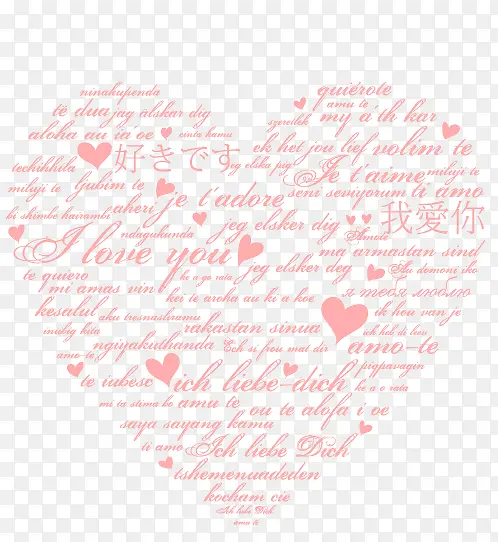 ninakupenda quiérote
amu te
të dua jag älskar dig szeretlek my a'th kar
aloha au ia'oe cinta kamu ek het jou lief volim te
techihhila 好きです jeg elska pig Je t'aime miluji te
miluji te ljubim te seni seviyorum ti amo
bi shimbe hairambi aheri je t'adore 我愛你
ndagukunda jeg elsker dig Amode
I love you ma armastan sind
te quiero ke a go rata jeg elsker deg Au domoni iko
mi amas vin kei te aroha au ki a koe я тебя люблю
kesalul aku tresnasliramu ik hou van je
rakastan sinua ich hel di bou
ngiyakuthanda Ech si frou mat dir amo-te
amo-te piapavagin
te iubesc ich liebe-dich ke a o rata
mi ta stima bo amu te ou te alofa i oe
saya sayang kamu
ti amo Ich liebe Dich
tshemenuadeden
kocham cie
Ich liebe Dich
amu te